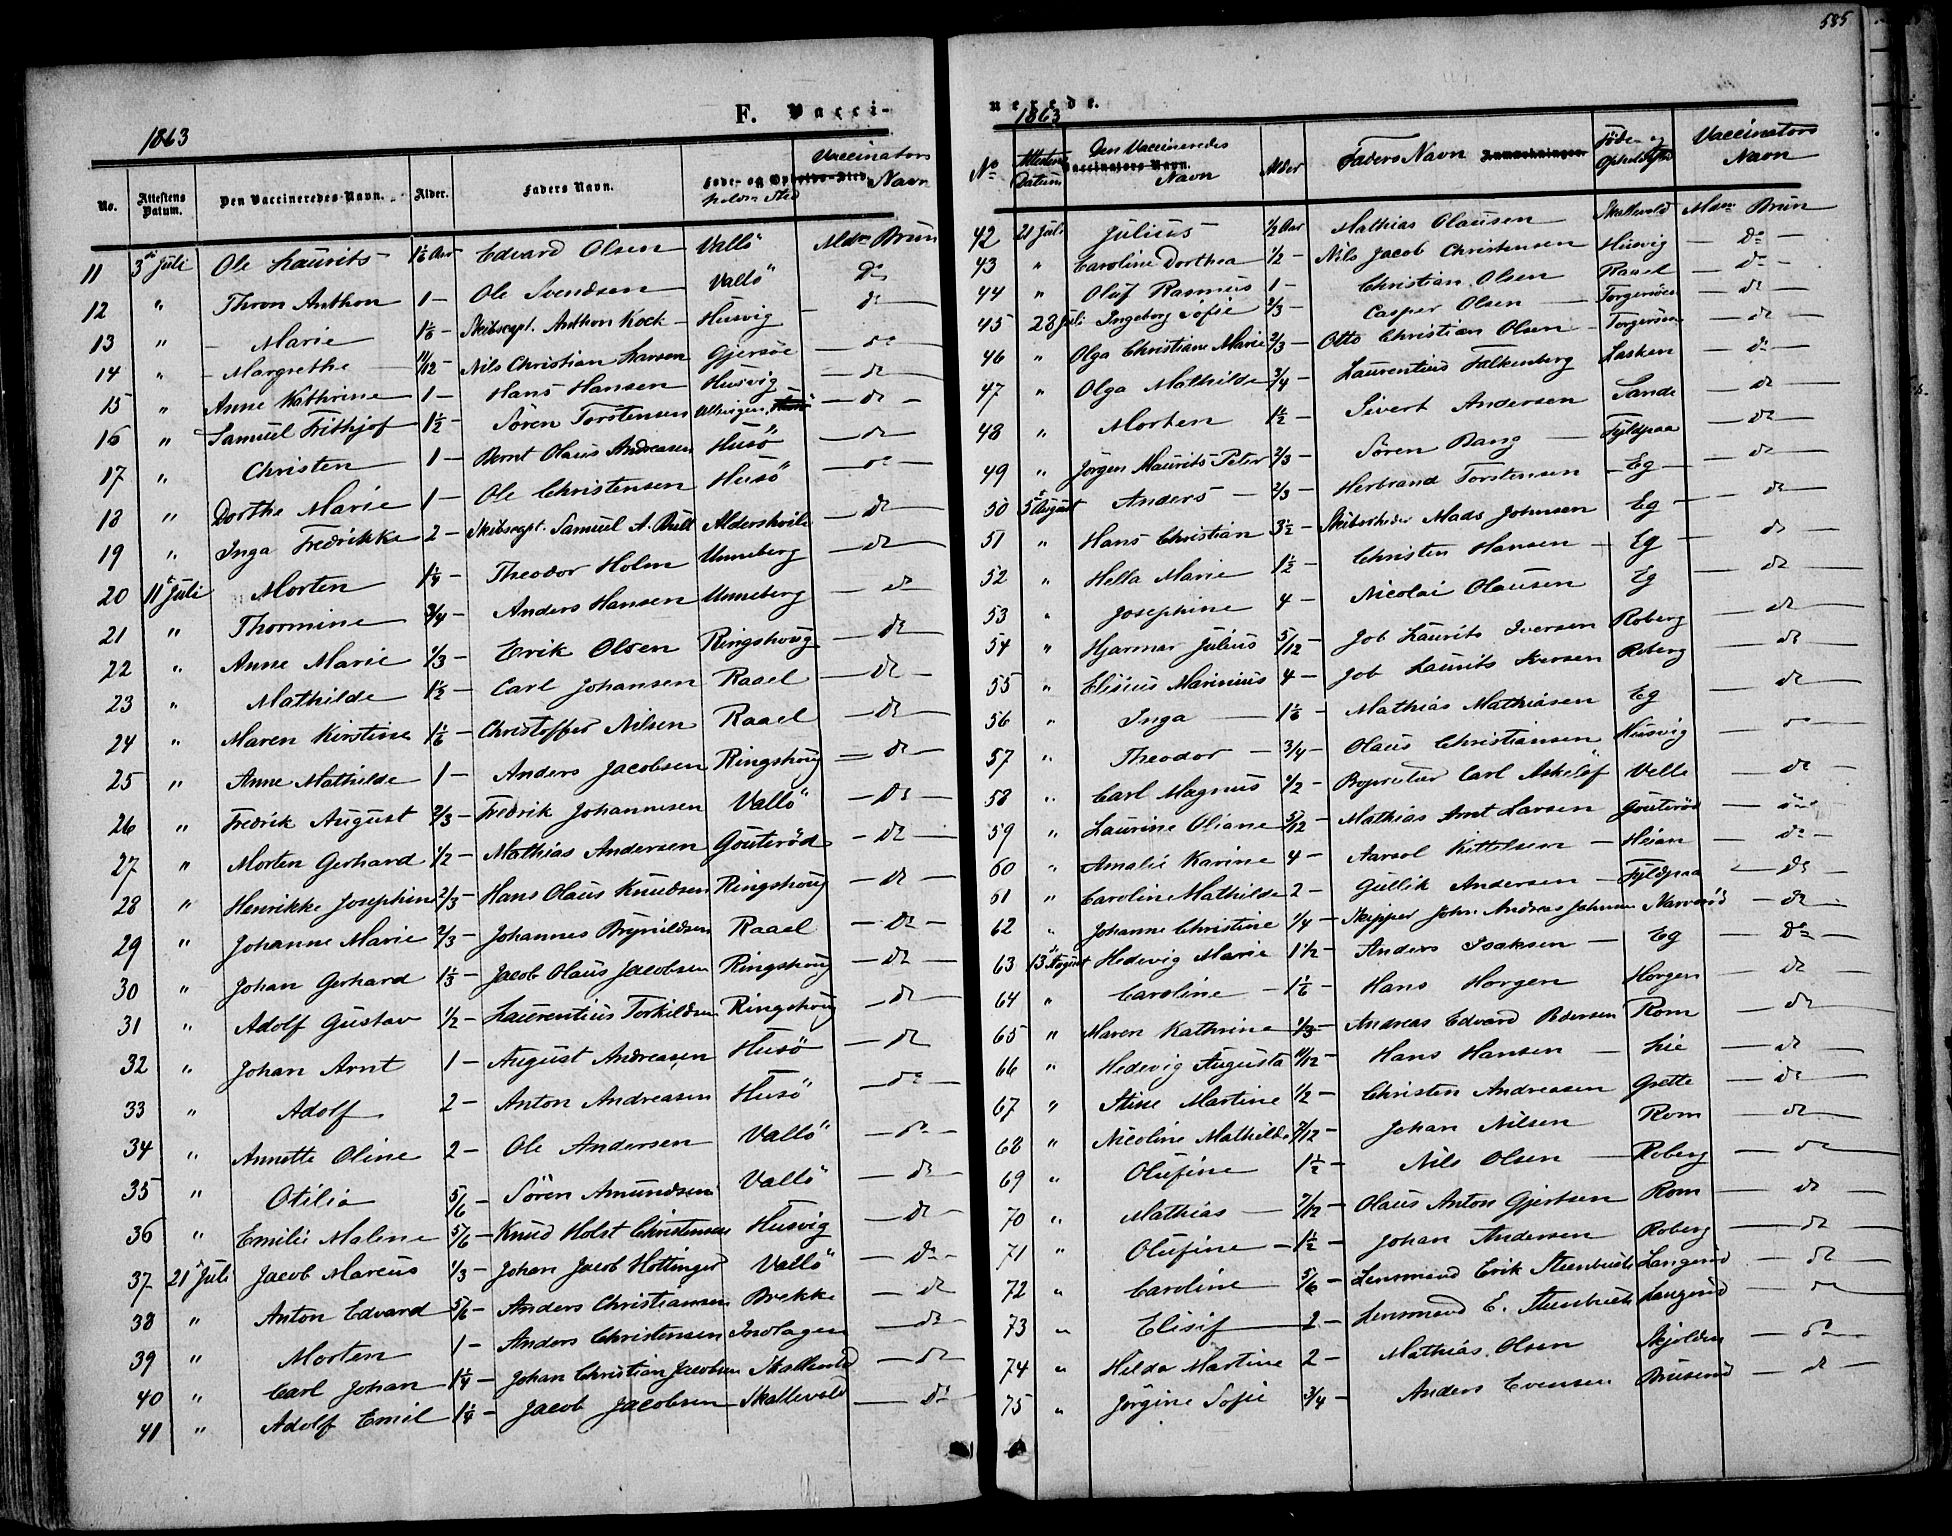 585
F. Vacci-
1863
No.
Attestens Datum.
Den Vaccineredes Navn.
Alder.
Faders Navn.
Føde- og Opholds-Sted.
Vaccinators Navn
11 3d Juli Ole Laurits 1 1/6 Aar Edvard Olsen Vallö Brun
12 " Thron Anthon 1 - Ole Svendsen Vallö do
13 " Marie 1 1/6 - Skibscapt. Anthon Kock Husvig do
14 " Margrethe 11/12 - Nils Christian Larsen Gjersøe do
15 " Anne Kathrine 1 - Hans Hansen Husvig do
16 " Samuel Frithjof 1 1/2 - Sören Torstensen do
17 " Christen 1 - Bernt Olaus Andreasen Husö do
18 " Dorthe Marie 1 - Ole Christensen Husö do
19 " Inga Fredrikke 2 - Skibscapt. Samuel A. Bull Aldershvile do
20 11d Juli Morten 1 1/4 - Theodor Holm Unneberg do
21 " Thormine 3/4 - Anders Hansen Unneberg do
22 " Anne Marie 1/3 - Erik Olsen Ringshoug do
23 " Mathilde 1 1/2 - Carl Johansen Raael do
24 " Maren Kirstine 1 1/6 - Christoffer Nilsen Raael do
25 " Anne Mathilde 1 - Anders Jacobsen Ringshoug do
26 " Fredrik August 2/3 - Fredrik Johannesen Vallö do
27 " Morten Gerhard 1/2 - Mathias Andersen Gouteröd do
28 " Henrikke Josephine 2/3 - Hans Olaus Knudsen Ringshoug do
29 " Johanne Marie 2/3 - Johannes Brynildsen Raael do
30 " Johan Gerhard 1 1/3 - Jacob Olaus Jacobsen Ringshoug do
31 " Adolf Gustav 1/2 - Laurentius Torkildsen Ringshoug do
32 " Johan Arnt 1 - August Andreasen Husö do
33 " Adolf 2 - Anton Andreasen Husö do
34 " Annette Oline 2 - Ole Andersen Vallö do
35 " Otilia 5/6 - Sören Amundsen Vallö do
36 " Emilie Malene 5/6 - Knud Holst Christensen Husvig do
37 21d Juli Jacob Marcus 1/3 - Johan Jacob Hottinger Vallö do
38 " Anton Edvard 5/6 - Anders Christiansen Brekke do
39 " Morten 1 - Anders Christensen Indlagen do
40 " Carl Johan 1 1/4 - Johan Christian Jacobsen Skallevold do
41 " Adolf Emil 1 1/4 - Jacob Jacobsen Skallevold do
nerede.
1863
No
Attestens Datum
Den Vaccineredes Navn
Alder
Faders Navn
Anmerkninger.
Føde- og Opholdssted
Vaccinators Navn
42 21 Juli Julius 1/2 Aar Mathias Olausen Skallevold Brun
43 " Caroline Dorthea 1/2 - Nils Jacob Christensen Husvig do
44 " Oluf Rasmus 1 - Christian Olsen Raael do
45 28 Juli Ingeborg Sofie 2/3 - Casper Olsen Torgersøen do
46 " Olga Christiane Marie 2/3 - Otto Christian Olsen Torgersøen do
47 " Olga Mathilde 3/4 - Laurentius Falkenberg Lasken do
48 " Morten 1 1/2 - Sivert Andersen Sande do
49 " Jörgen Maurits Peter 2/3 - Sören Bang Fyldpaa do
50 5d August Anders 2/3 - Herbrand Torstensen Eg do
51 " Hans Christian 3 1/2 - Mads Johnsen Eg do
52 " Hella Marie 1 1/2 - Christen Hansen Eg do
53 " Josephine 4 - Nicolai Olausen Eg do
54 " Hjarmar Julius 5/12 - Job Laurits Iversen Roberg do
55 " Elisius Marinius 4 - Job Laurits Iversen Roberg do
56 " Inga 1 1/6 - Mathias Mathiasen Eg do
57 " Theodor 3/4 - Olaus Christiansen Husvig do
58 " Carl Magnus 1/2 - Proprietær Carl Askelöf Velle do
59 " Laurine Oliane 5/12 - Mathias Arnt Larsen Gouteröd do
60 " Amalie Karine 4 - Aarsol Kittelsen Heian do
61 " Caroline Mathilde 2 - Gullik Andersen Fyldpaa do
62 " Johanne Christine 1/4 - Skipper John Andreas Johnsen Narveröd do
63 13d August Hedevig Marie 1 1/2 - Anders Isaksen Eg do
64 " Caroline 1 1/6 - Hans Horgen Horgen do
65 " Maren Kathrine 1/3 - Andreas Edvard Pedersen Rom do
66 " Hedevig Augusta 11/12 - Hans Hansen Lie do
67 " Stine Martine 1/2 - Christen Andreasen Grette do
68 " Nicoline Mathilde 7/12 - Johan Nilsen Rom do
69 " Olufine 1 1/2 - Nils Olsen Roberg do
70 " Mathias 7/12 - Olaus Anton Gjertsen Rom do
71 " Olufine 1 1/2 - Johan Andersen Roberg do
72 " Caroline 5/6 - Lensmand Erik Steenbuch Langerud do
73 " Elisif 2 - Lensmand E. Steenbuch Langerud do
74 " Hilda Martine 2 - Mathias Olsen Skjolden do
75 " Jörgine Sofie 3/4 - Anders Evensen Bruserud do